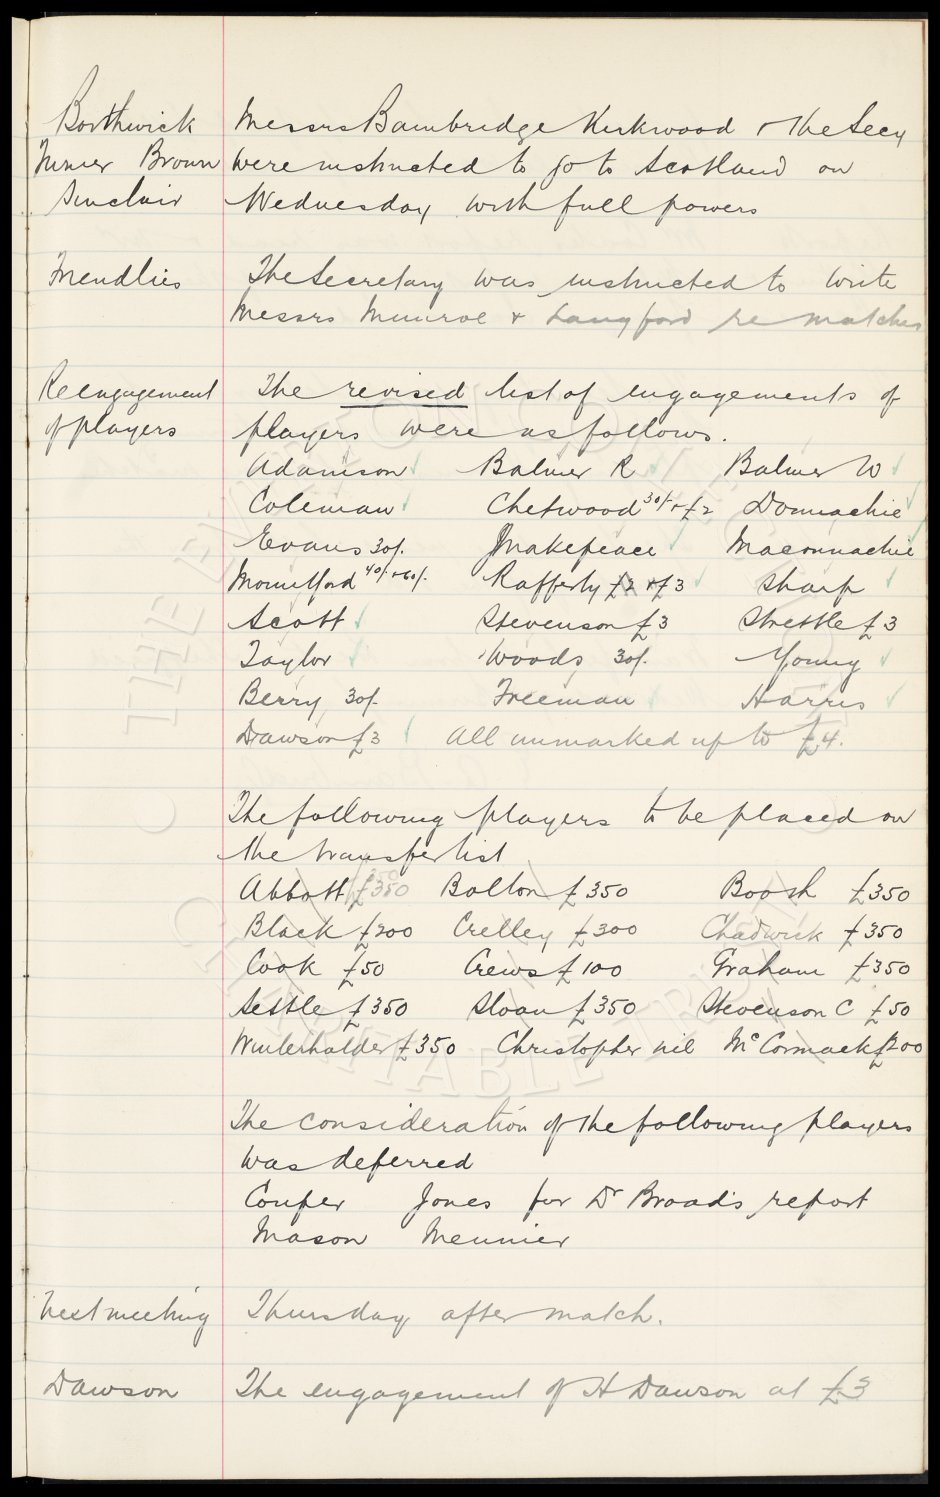 Borthwick Messrs Bainbridge Kirkwood & the Secy
Turner Brown were instructed to go to Scotland on
Sinclair Wednesday with full powers
Friendlies The Secretary was instructed to write
Messrs Munroe & Langford re matches
Reengagement The revised list of engagements of
of players players were as follows.
Adamson Balmer R Balmer W
Coleman Chetwood 30/- & £2 Donnachie
Evans 30/- Makepeace Maconnachie
Mountford 40/- & 60/- Rafferty £2 & £3 Sharp
Scott Stevenson £3 Strettle £3
Taylor Woods 30/- Young
Berry 30/- Freeman Harris
Dawson £3 All unmarked up to £4.
The following players to be placed on
the transfer list
Abbott £350 Bolton £350 Booth £350
Black £200 Crelley £300 Chadwick £350
Cook £50 Crews £100 Graham £350
Settle £350 Sloan £350 Stevenson C £50
Winterhalder £350 Christopher nil McCormack £200
The consideration of the following players
was deferred
Couper Jones for Dr Broad's report
Mason Meunier
Next meeting Thursday after match.
Dawson The engagement of H Dawson at £3
THE EVERTON COLLECTION
CHARITABLE TRUST